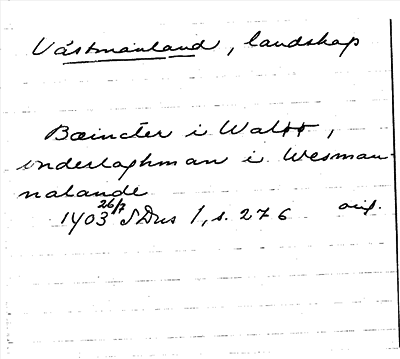 Västmanland, landskap
Bæincter i Waltt,
vnderlaghman i Wesman-
nalande
1403 26/7 SDns 1, s. 276 orig.